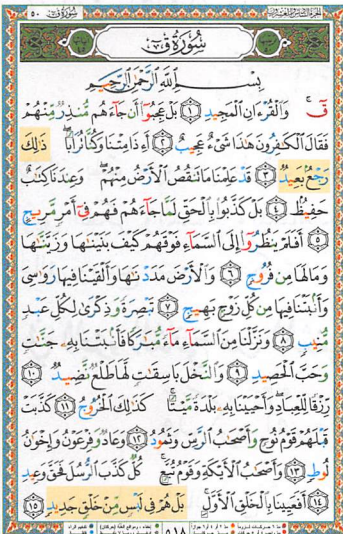 سورة ق ٥٠
سُورَةُ قٓ
بِسْمِ ٱللَّهِ ٱلرَّحْمَٰنِ ٱلرَّحِيمِ
قٓ ۚ وَٱلْقُرْءَانِ ٱلْمَجِيدِ ١ بَلْ عَجِبُوٓا۟ أَن جَآءَهُم مُّنذِرٌ مِّنْهُمْ
فَقَالَ ٱلْكَٰفِرُونَ هَٰذَا شَىْءٌ عَجِيبٌ ٢ أَءِذَا مِتْنَا وَكُنَّا تُرَابًا ۖ ذَٰلِكَ
رَجْعٌۢ بَعِيدٌ ٣ قَدْ عَلِمْنَا مَا تَنقُصُ ٱلْأَرْضُ مِنْهُمْ ۖ وَعِندَنَا كِتَٰبٌ
حَفِيظٌۢ ٤ بَلْ كَذَّبُوا۟ بِٱلْحَقِّ لَمَّا جَآءَهُمْ فَهُمْ فِىٓ أَمْرٍ مَّرِيجٍ
٥ أَفَلَمْ يَنظُرُوٓا۟ إِلَى ٱلسَّمَآءِ فَوْقَهُمْ كَيْفَ بَنَيْنَٰهَا وَزَيَّنَّٰهَا
وَمَا لَهَا مِن فُرُوجٍ ٦ وَٱلْأَرْضَ مَدَدْنَٰهَا وَأَلْقَيْنَا فِيهَا رَوَٰسِىَ
وَأَنۢبَتْنَا فِيهَا مِن كُلِّ زَوْجٍۭ بَهِيجٍ ٧ تَبْصِرَةً وَذِكْرَىٰ لِكُلِّ عَبْدٍ
مُّنِيبٍ ٨ وَنَزَّلْنَا مِنَ ٱلسَّمَآءِ مَآءً مُّبَٰرَكًا فَأَنۢبَتْنَا بِهِۦ جَنَّٰتٍ
وَحَبَّ ٱلْحَصِيدِ ٩ وَٱلنَّخْلَ بَاسِقَٰتٍ لَّهَا طَلْعٌ نَّضِيدٌ ١٠
رِّزْقًا لِّلْعِبَادِ ۖ وَأَحْيَيْنَا بِهِۦ بَلْدَةً مَّيْتًا ۚ كَذَٰلِكَ ٱلْخُرُوجُ ١١ كَذَّبَتْ
قَبْلَهُمْ قَوْمُ نُوحٍ وَأَصْحَٰبُ ٱلرَّسِّ وَثَمُودُ ١٢ وَعَادٌ وَفِرْعَوْنُ وَإِخْوَٰنُ
لُوطٍ ١٣ وَأَصْحَٰبُ ٱلْأَيْكَةِ وَقَوْمُ تُبَّعٍ ۚ كُلٌّ كَذَّبَ ٱلرُّسُلَ فَحَقَّ وَعِيدِ
١٤ أَفَعَيِينَا بِٱلْخَلْقِ ٱلْأَوَّلِ ۚ بَلْ هُمْ فِى لَبْسٍ مِّنْ خَلْقٍ جَدِيدٍ ١٥
٥١٨